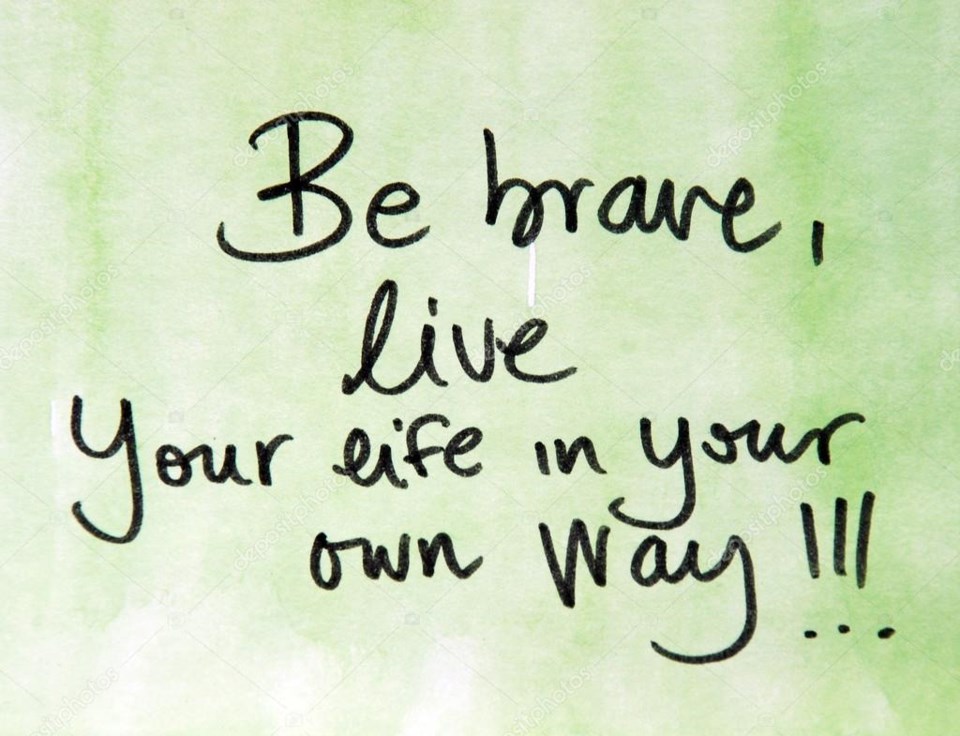 Be brave,
live
Your life in your
own Way !!!